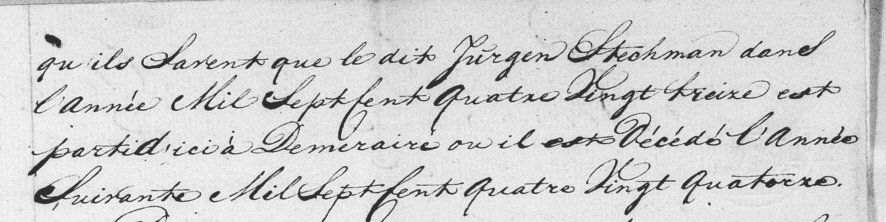 qu'ils Savent que le dit Jürgen Stechman dans
l'année Mil Sept Cent quatre Vingt treize est
parti d'ici à Demerairé ou il est Décédé l'Année
Suivante Mil Sept Cent quatre Vingt quatorze.